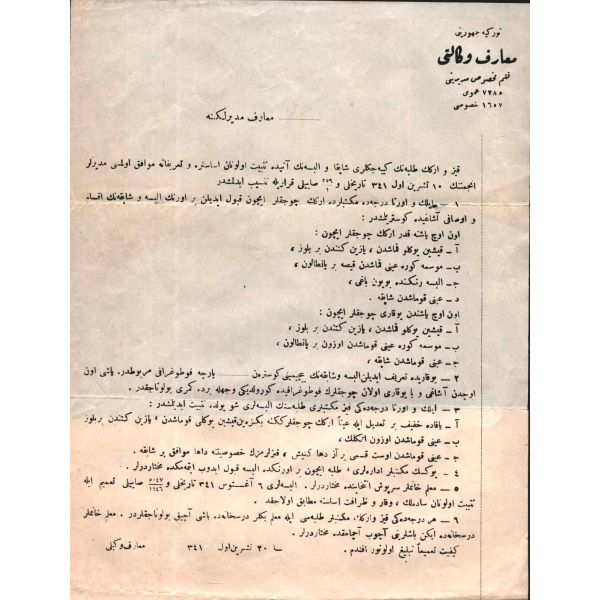 تورکیه جمهوریتی
معارف وکالتی
قلم مخصوص مدیریتی
٧٣٨٥ عمومی
١٦٥٧ خصوصی
معارف مدیرلکنه
قیز و ارکك طلبه‌نك کییه‌جکلری شاپقا و البسه‌نك آتیده تثبیت اولونان اساسلره و تعریفاته موافق اولمسی مدیرلر
انجمننك ١٠ تشرین اول ٣٤١ تاریخلی و ٢٥٩/١ صاییلی قراریله تنسیب ایدلمشدر
١ ــ ایلك و اورتا درجه‌ده مکتبلرده ارکك چوجقلر ایچون قبول ایدیلن بر اورنك البسه و شابقه‌نك اقسام
و اوصافی آشاغیده کوسترلمشدر :
اون اوچ یاشنه قدر ارکك چوجقلر ایچون :
آ ــ قیشین یوکلو قماشدن ، یازین کتندن بر بلوز ،
ب ــ موسمه کوره عینی قماشدن قیصه بر پانطالون ،
ج ــ البسه رنکنده بویون باغی ،
د ــ عینی قوماشدن شاپقه .
اون اوچ یاشندن یوقاری چوجقلر ایچون :
آ ــ قیشین یوکلو قماشدن ، یازین کتندن بر بلوز ،
ب ــ موسمه کوره عینی قوماشدن اوزون بر پانطالون ،
ج ــ عینی قوماشدن شاپقه ،
٢ ــ یوقاریده تعریف ایدیلن البسه وشابقه‌نك بیچیمینی کوسترن پارچه فوطوغرافی مربوطدر. یاشی اون
اوچدن آشاغی و یا یوقاری اولان چوجقلرك فوطوغرافیده کورولدیکی وجهله برده کمری بولوناجقدر .
٣ ــ ایلك و اورتا درجه‌ده‌کی قیز مکتبلری طلبه‌سنك البسه‌لری شو یولده تثبیت ایدیلمشدر :
آ ــ یاقاده خفیف بر تعدیل ایله عیناً ارکك چوجقلرککنه بکزه‌ین قیشین یوکلی قوماشدن ، یازین کتندن بربلوز
ب ــ عینی قوماشدن اوزون اتکلك ،
ج ــ عینی قوماشدن اوست قسمی بر آز دها کنیش ، قیزلرمزك خصوصیته داها موافق بر شاپقه .
٤ ــ یوکسك مکتبلر اداره‌لری ، طلبه ایچون بر اورنکده البسه قبول ایدوب ایتمه‌مکده مختاردرلر .
٥ ــ معلم خانملر سرپوش انتخابنده مختاردرلر . البسه‌لری ٦ آغستوس ٣٤١ تاریخلی و ٥٠٤٧/١٢٤٦ صاییلی تعمیم ایله
تثبیت اولونان ساده‌لك ، وقار و ظرافت اساسنه مطابق اولاجقد
٦ ــ هر درجه‌ده‌کی قیز وارکك مکتبلر طلبه‌سی ایله معلم بکلر درسخانه‌ده باشی آچیق بولوناجقلردر . معلم خانملر
درسخانه‌ده ایکن باشلرینی آچوب آچمامقده مختاردرلر .
کیفیت تعمیماً تبلیغ اولونور افندم .
٢٠ تشرین اول ٣٤١ معارف وکیلی